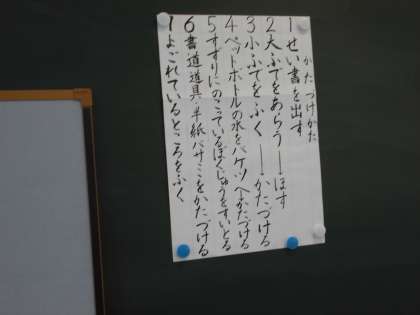 かたづけかた
1せい書を出す
2大ふでをあらう―ほす
3小ふでをふく―かたづける
4ペットボトルの水をバケツへかたづける
5すずりにのこっているぼくじゅうをすいとる
6書道道具・半紙バサミをかたづける
7よごれているところをふく